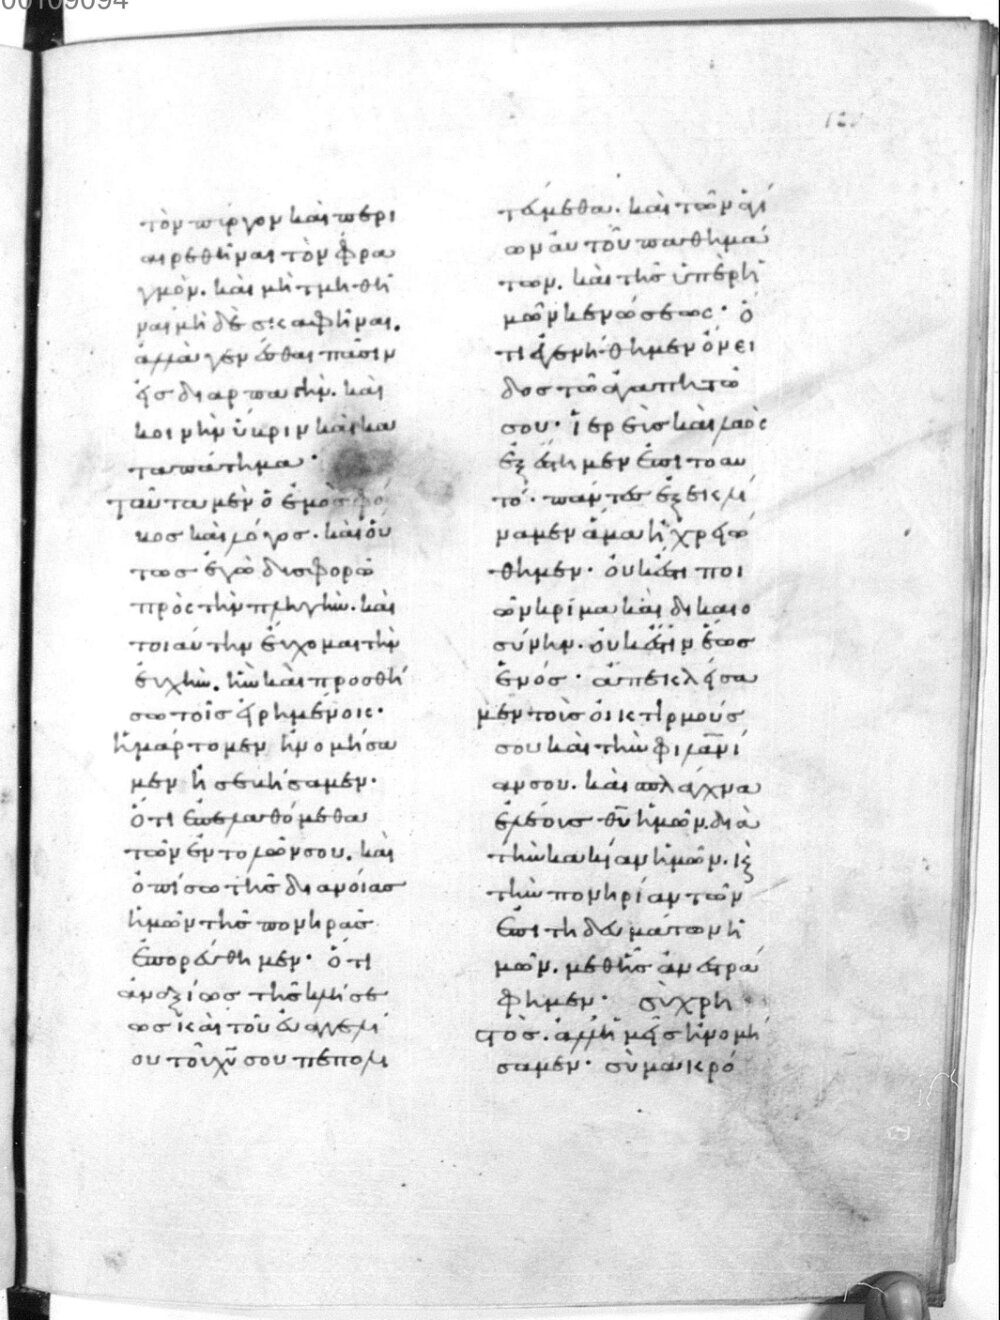 00109094
τὸν πύργον καὶ περι
αιρεθῆναι τὸν φρα
γμὸν. καὶ μὴ τμηθῆ
ναι μὴ δὲ σκαφῆναι.
ἀλλὰ γενέσθαι πᾶσιν
εἰς διαρπαγὴν. καὶ
κοινὴν καὶ κα
ταπάτημα·
ταῦτα μὲν ὁ ἐμὸς φό
κος καὶ λόγος. καὶ οὑ
τως ἐγὼ διαφορῶ
πρὸς τὴν πληγὴν. καὶ
τοιαύτην εὔχομαι τὴν
εὐχὴν. ἣν καὶ προσθή
σω τοῖς εἰρημένοις·
ἡμάρτομεν ἠνομήσα
μεν ἠσεβήσαμεν·
ὅτι ἐπελαθόμεθα
τῶν ἐντολῶν σου. καὶ
ὀπίσω τῆς διανοίας
ἡμῶν τῆς πονηρᾶς
ἐπορεύθημεν· ὅτι
ἀναξίως τῆς κλήσε
ως καὶ τοῦ εὐαγγελί
ου τοῦ χυ σου πεπολι
τεύμεθα. καὶ τῶν ἁγί
ων αὐτοῦ παθημά
των. καὶ τῆς ὑπὲρ ἡ
μῶν κενώσεως· ὅ
τι ἐγενήθημεν ὄνει
δος τῶ ἀγαπητῶ
σου· ἱερεὺς καὶ λαὸς
ἐξέστημεν ἐπιτοαυ
τό· πάντες ἐξεκλί
ναμεν ἅμα ἠχρειώ
θημεν· οὐκ ἔστι ποι
ῶν κρίμα καὶ δικαιο
σύνην. οὐκ ἔστιν ἕως
ἑνός· ἀπεκλείσα
μεν τοὺς οἰκτιρμούς
σου καὶ τὴν φιλανί
αν σου. καὶ σπλάγχνα
ἐλέους θυ ἡμῶν. διὰ
τὴν κακίαν ἡμῶν. κ
τὴν πονηρίαν τῶν
ἐπιτηδευμάτων ἡ
μῶν. μεθ' ἧς ἀνεστρά
φημεν· σὺ χρη
στὸς. ἀλλ' ἡμεῖς ἠνομή
σαμεν· σὺ μακρό